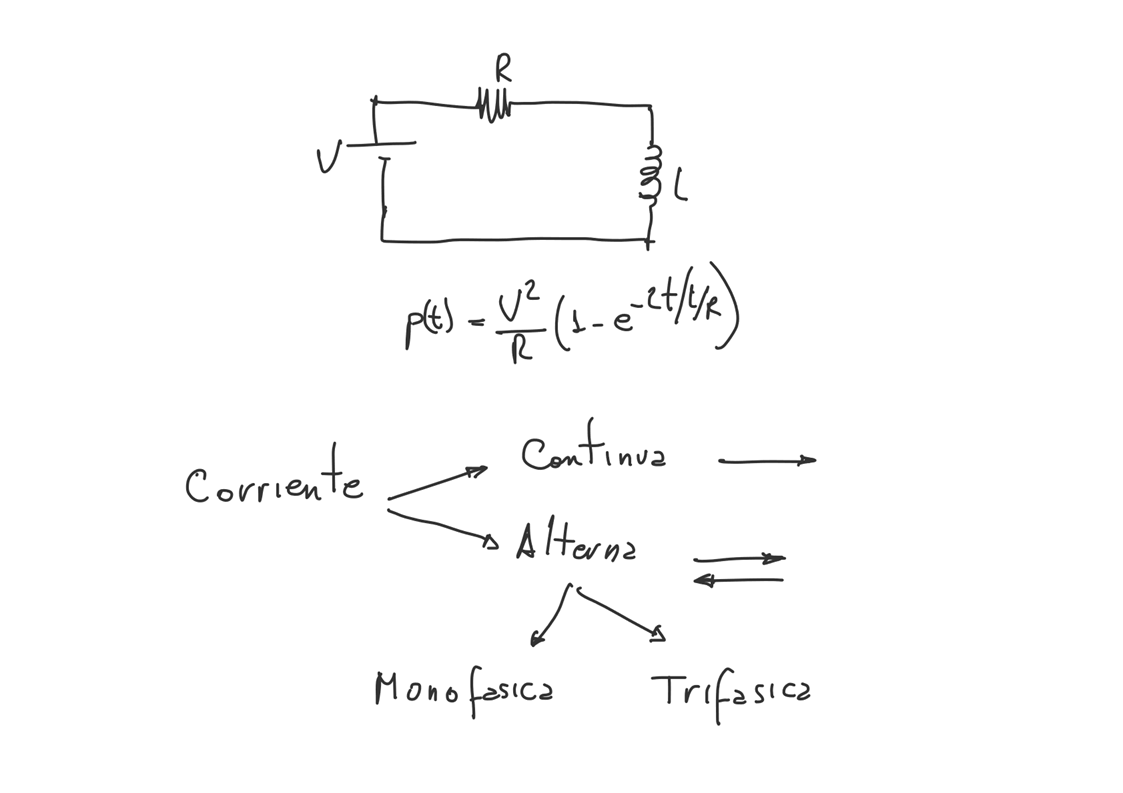 R
V
L
p(t) = V²/R (1 - e^-2t/L/R)
Corriente
Continua
Alterna
Monofasica
Trifasica